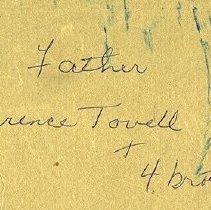 Father
rence Tovell
+
4 bro